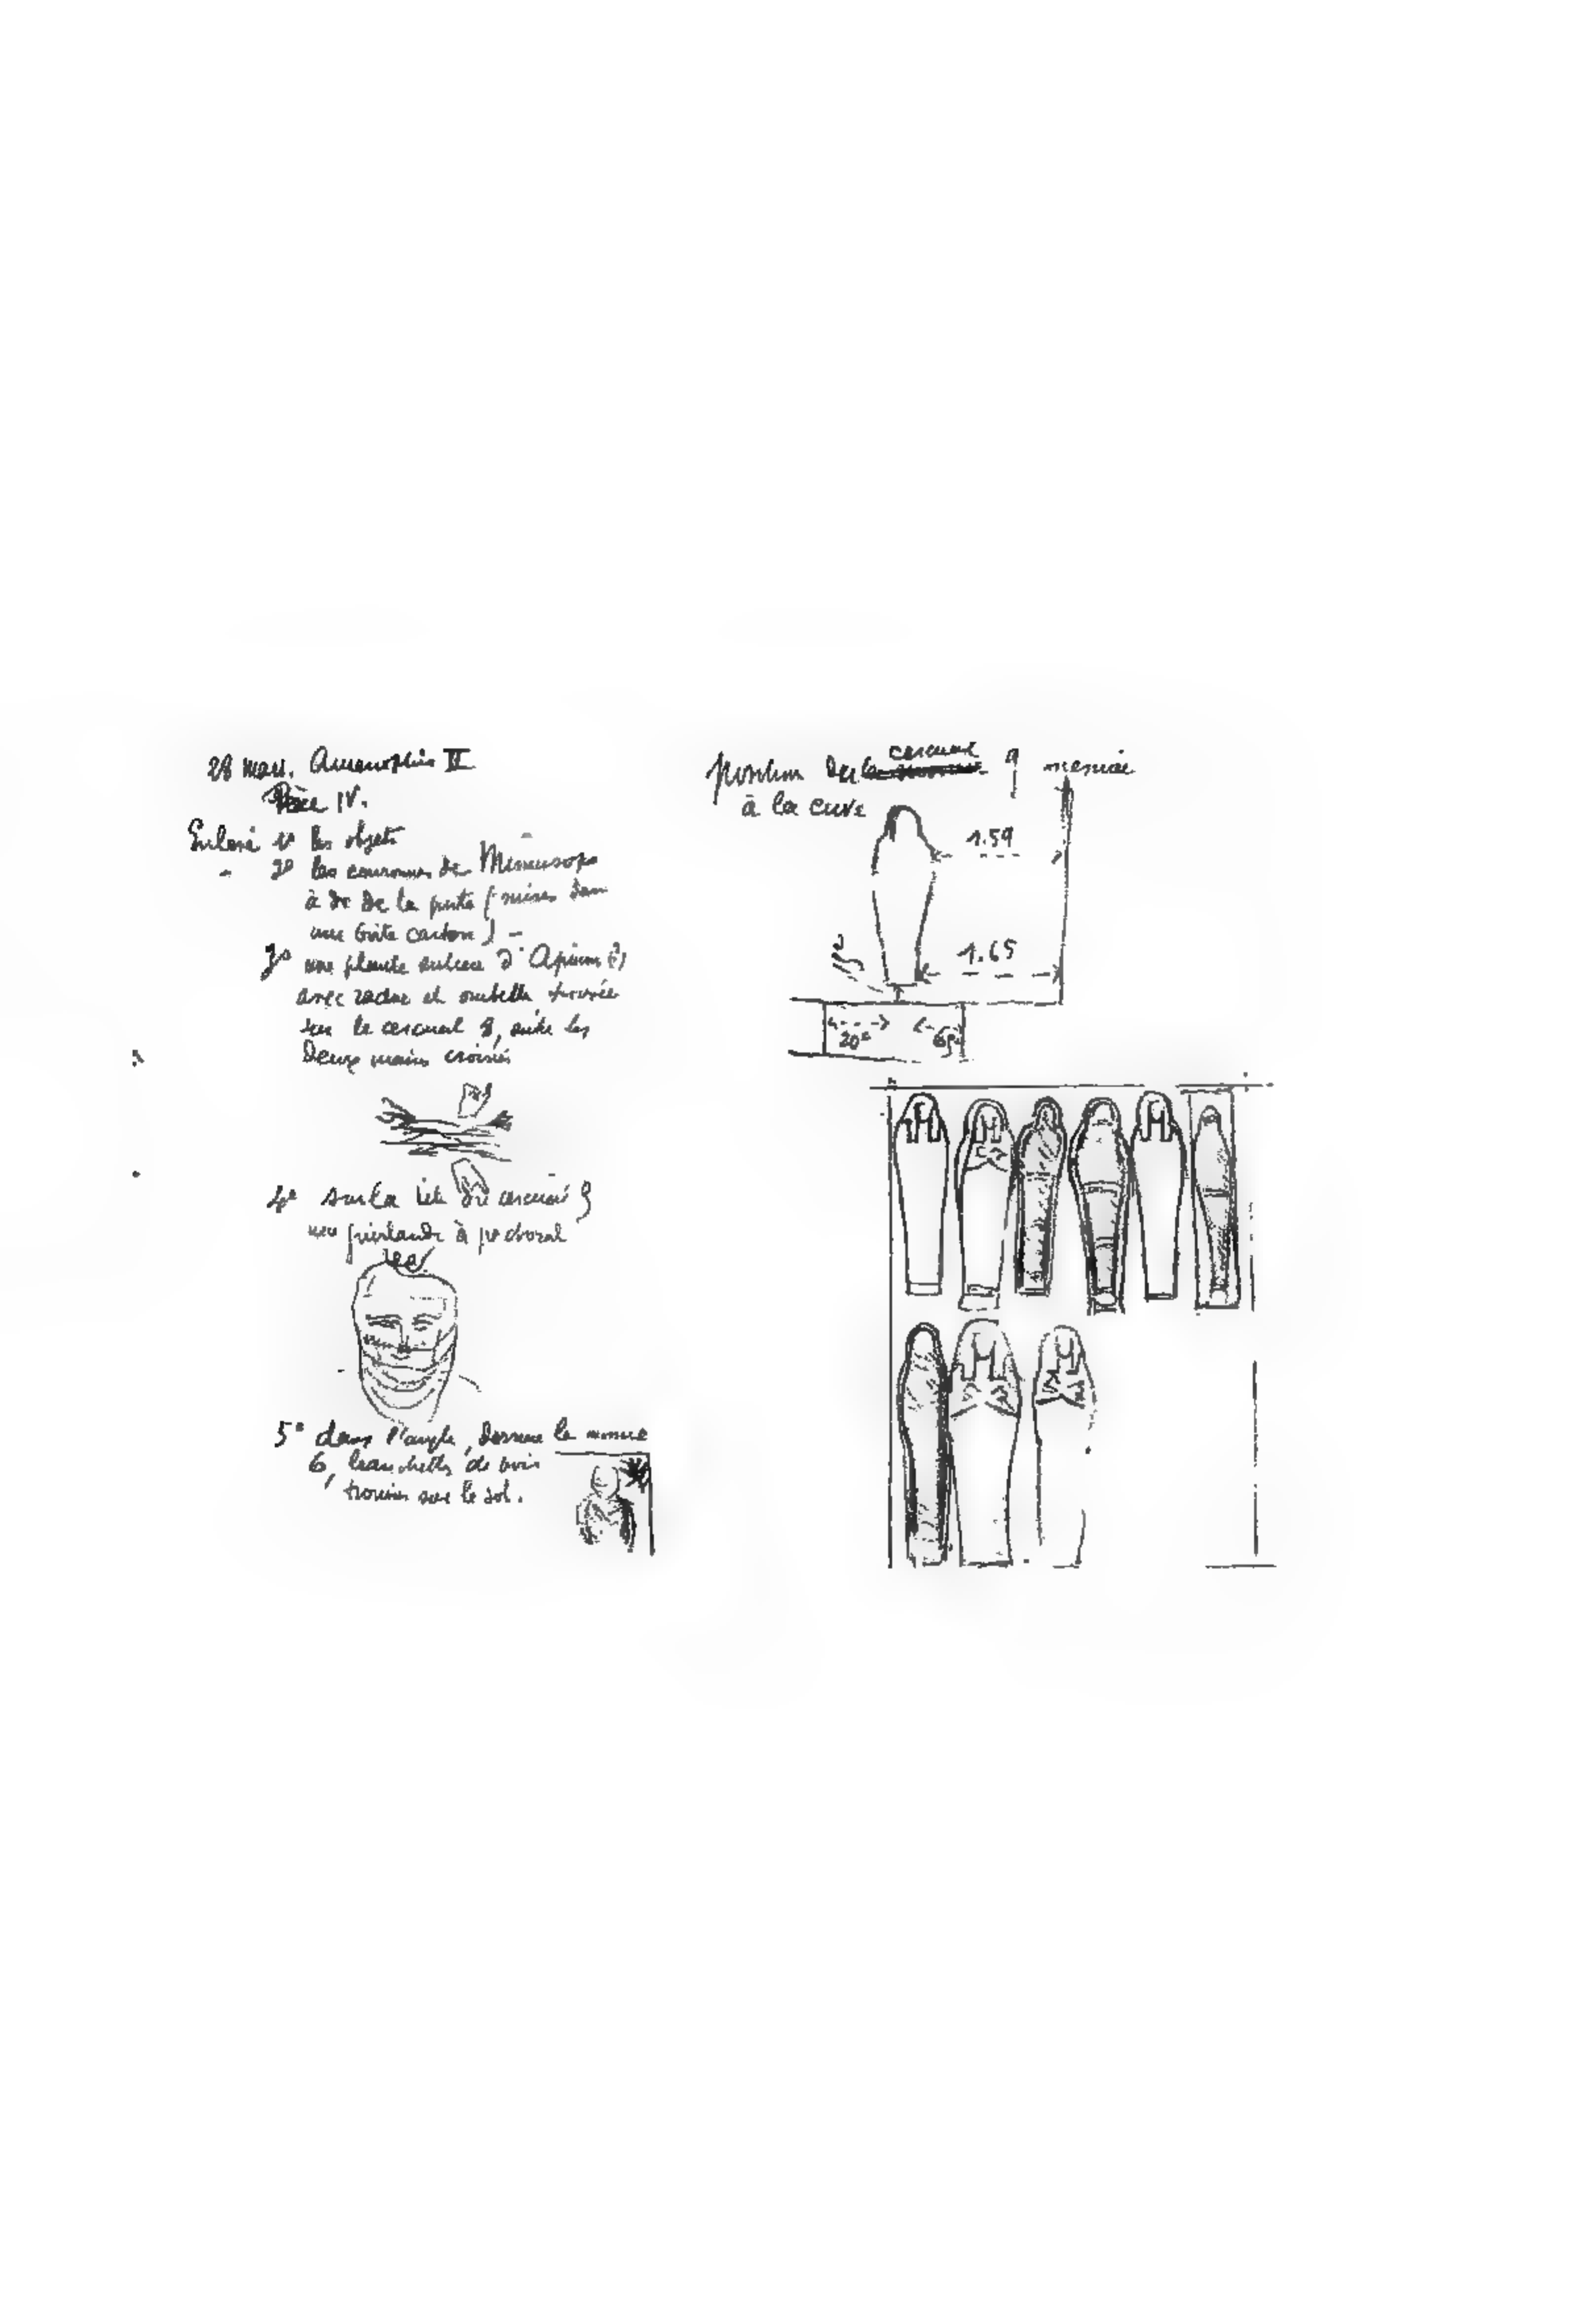 28 mars. Amenophis II
Pièce IV.
Enlevé 1º les objets
- 2º les couronnes de Mimusops
à dr de la porte (mises dans
une boîte carton) -
3º une plante entière d'Apium (?)
avec racine et ombelle trouvée
sur le cercueil 8, entre les
deux mains croisées
4º sur la tête du cercueil 9
une guirlande à pectoral
5º dans l'angle, derrière la momie
6, branchettes de bois
trouvées sur le sol.
position du cercueil 9
à la cuve
1.59
1.65
20ᶜ